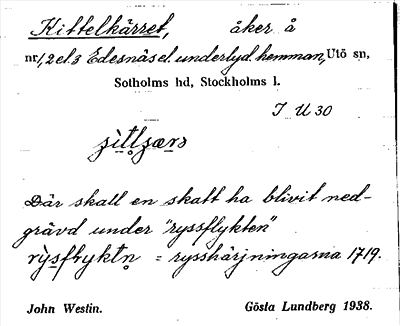 Kittelkärret, åker å
nr 1, 2 el. 3 Edesnäs el. underlyd. hemman, Utö sn,
Sotholms hd, Stockholms l.
I U 30
Där skall en skatt ha blivit ned-
grävd under "ryssflykten"
= rysshärjningarna 1719.
John Westin. Gösta Lundberg 1938.